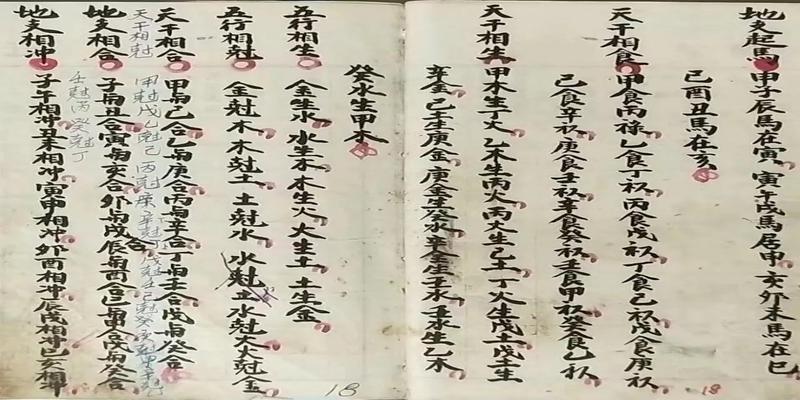 地支起馬 甲子辰馬在寅 寅午戌馬居申 亥卯未馬在巳
巳酉丑馬在亥
天干相食 甲食丙祿 乙食丁祿 丙食戊祿 丁食己祿 戊食庚祿
己食辛祿 庚食壬祿 辛食癸祿 壬食甲祿 癸食乙祿
天干相生 甲木生丁火 乙木生丙火 丙火生己土 丁火生戊土 戊土生
辛金 己土生庚金 庚金生癸水 辛金生壬水 壬水生乙木
癸水生甲木
五行相生 金生水 水生木 木生火 火生土 土生金
五行相尅 金尅木 木尅土 土尅水 水尅火 火尅金
天干相合 甲與己合 乙與庚合 丙與辛合 丁與壬合 戊與癸合
天干相尅 甲尅戊 乙尅己 丙尅庚
地支相合 子與丑合 寅與亥合 卯與戌合 辰與酉合 巳與申合 午與
壬尅丙 癸尅丁
地支相冲 子午相冲 丑未相冲 寅申相冲 卯酉相冲 辰戌相冲 巳亥相冲
18
18